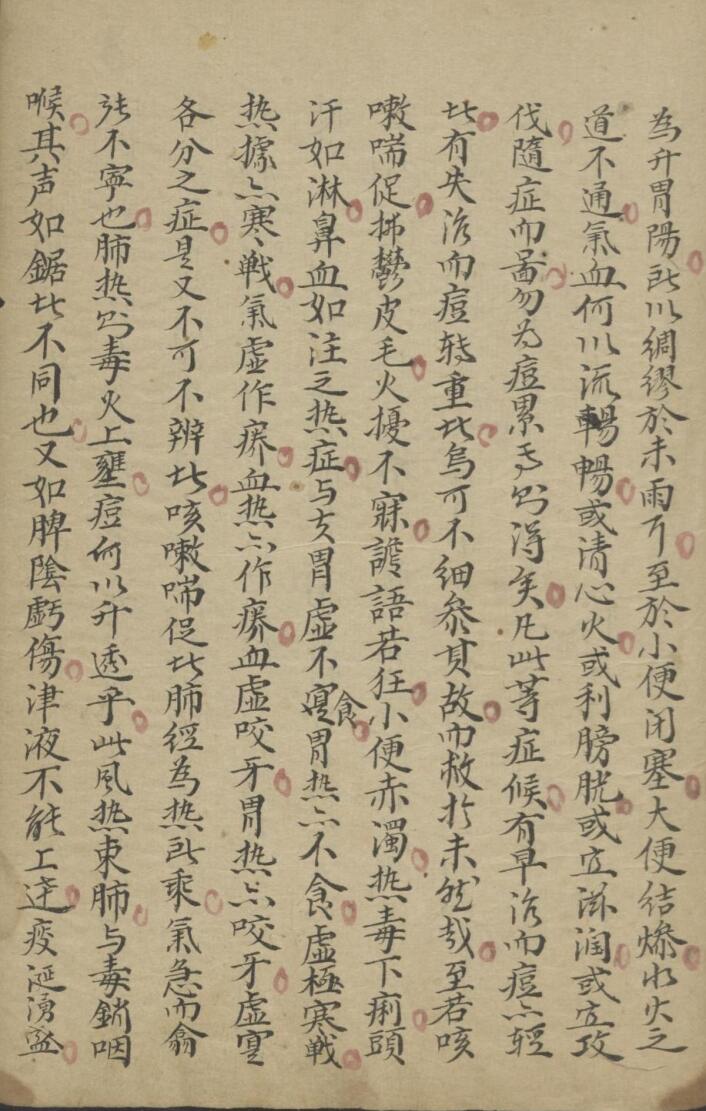 為升胃陽所以綢繆於未雨耳至於小便闭塞大便结燥水火之
道不通氣血何以流暢暢或清心火或利膀胱或宜滋润或宜攻
伐隨症而啚勿为痘累焉則得矣凡此等症候有早治而痘亦轻
此有失治而痘转重此烏可不细參其故而救於未然哉至若咳
嗽喘促拂鬱皮毛火擾不寐譫語若狂小便赤濁热毒下痢頭
汗如淋鼻血如注之热症与夫胃虚不食胃热亦不食虚極寒戰
热據亦寒寒战氣虚作痒血热亦作痒血虚咬牙胃热亦咬牙虚寔
各分之症是又不可不辨此咳嗽喘促此肺經為热所乘氣急而龠
张不寧也肺热則毒火上壅痘何以升透乎此風热束肺与毒銷咽
喉其声如鋸此不同也又如脾陰虧傷津液不能上达痰涎湧盛